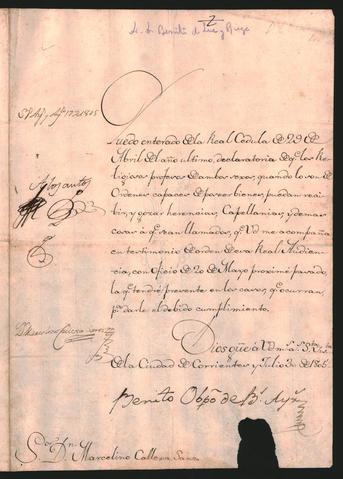 2
Quedo enterado de la Real Cedula de 29 de
Abril del año ultimo, declaratoria de q.e los Re-
ligiosos profesos de ambos sexos, quando lo son de
Ordenes capaces de poseer bienes, puedan reci-
bir, y gozar herencias, Capellanias, y demas
cosas à q.e sean llamados, q.e Vd me acompaña
en testimonio de orden de esa Real Audien-
cia, con Oficio de 20 de Mayo proximo pasado,
la q.e tendré presente en los casos, q.e ocurran,
p.a darle el debido cumplimiento.
A los autos
Dios gũe à Vd m.s a.s S.ta
de la Ciudad de Corrientes y Julio 3 de 1805
Benito Obpõ de B.s Ay.s
S.or D.n Marcelino Callexa Sanz